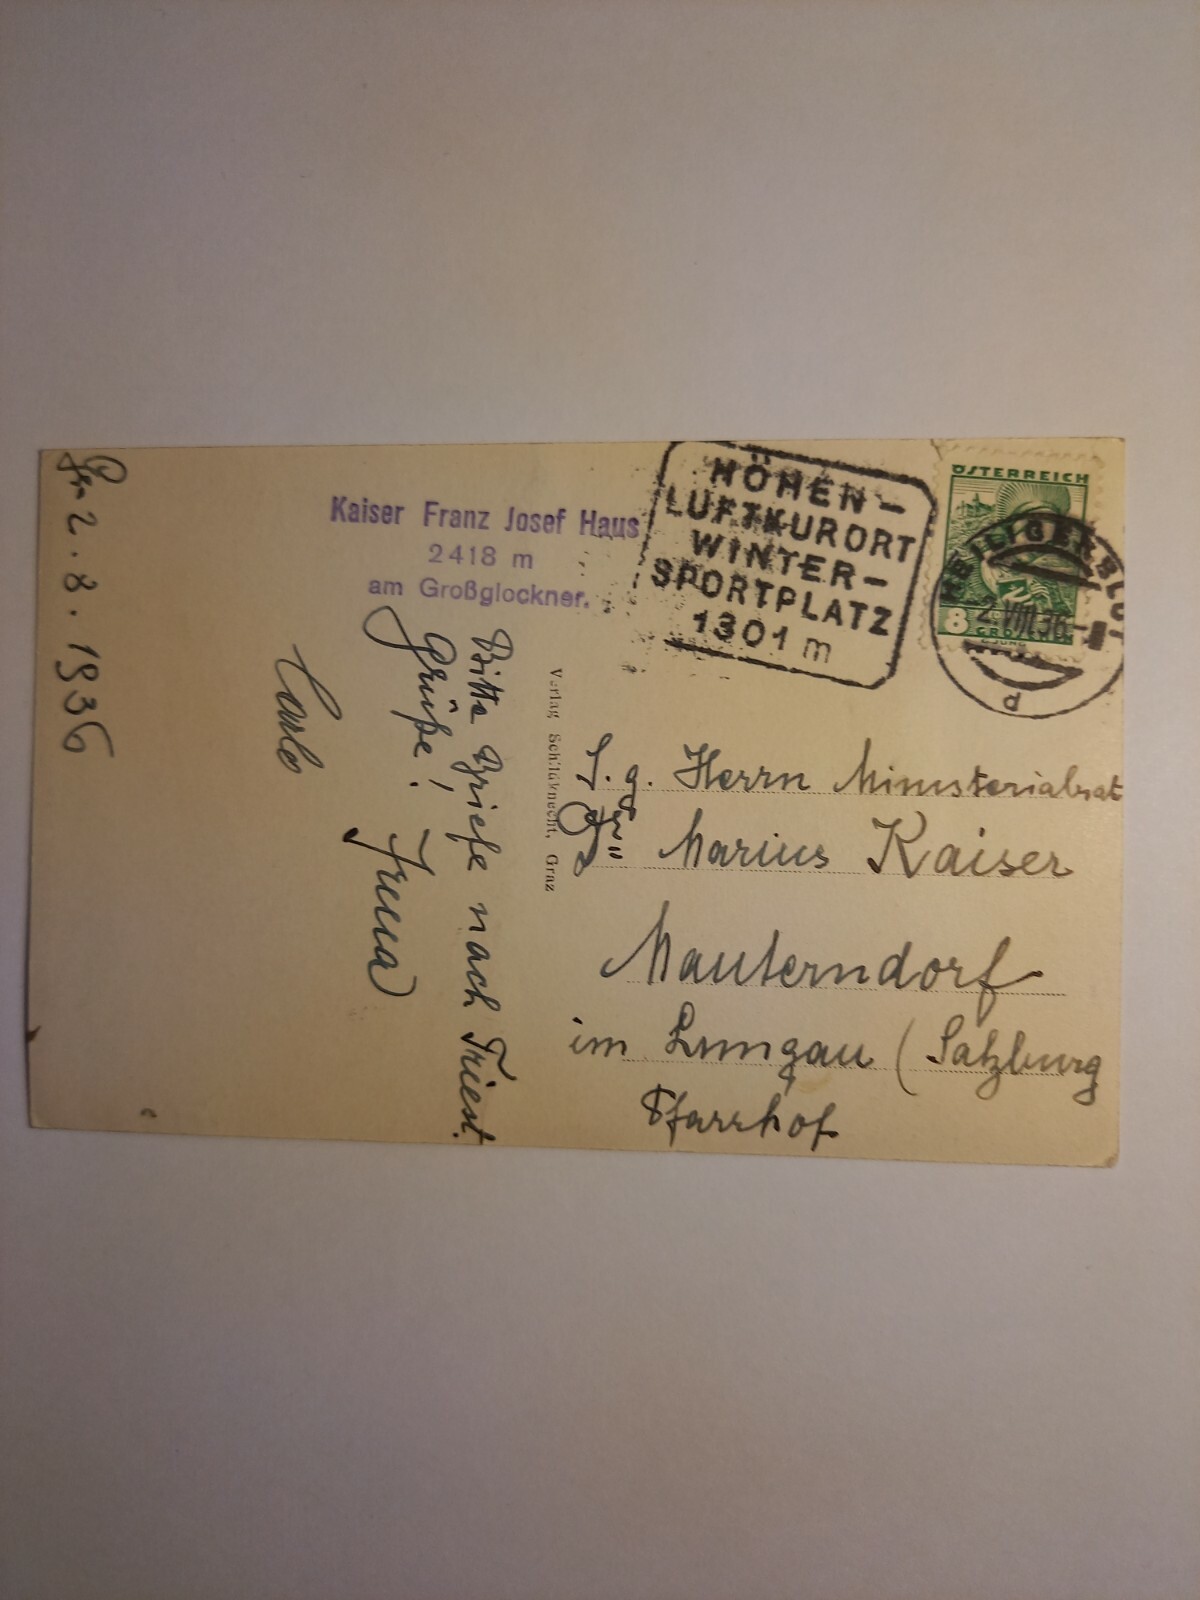 Gr 2.8.1936
Kaiser Franz Josef Haus
2418 m
am Großglockner.
Bitte Briefe nach Triest.
Grüße!
Irena
Carlo
Verlag Schildknecht, Graz
HÖHEN-
LUFTKURORT
WINTER-
SPORTPLATZ
1301 m
ÖSTERREICH
8
GROSCHEN
HEILIGENBLUT
2.VIII.36
p
S. g. Herrn Ministerialrat
Marius Kaiser
Mauterndorf
im Lungau (Salzburg
Pfarrhof